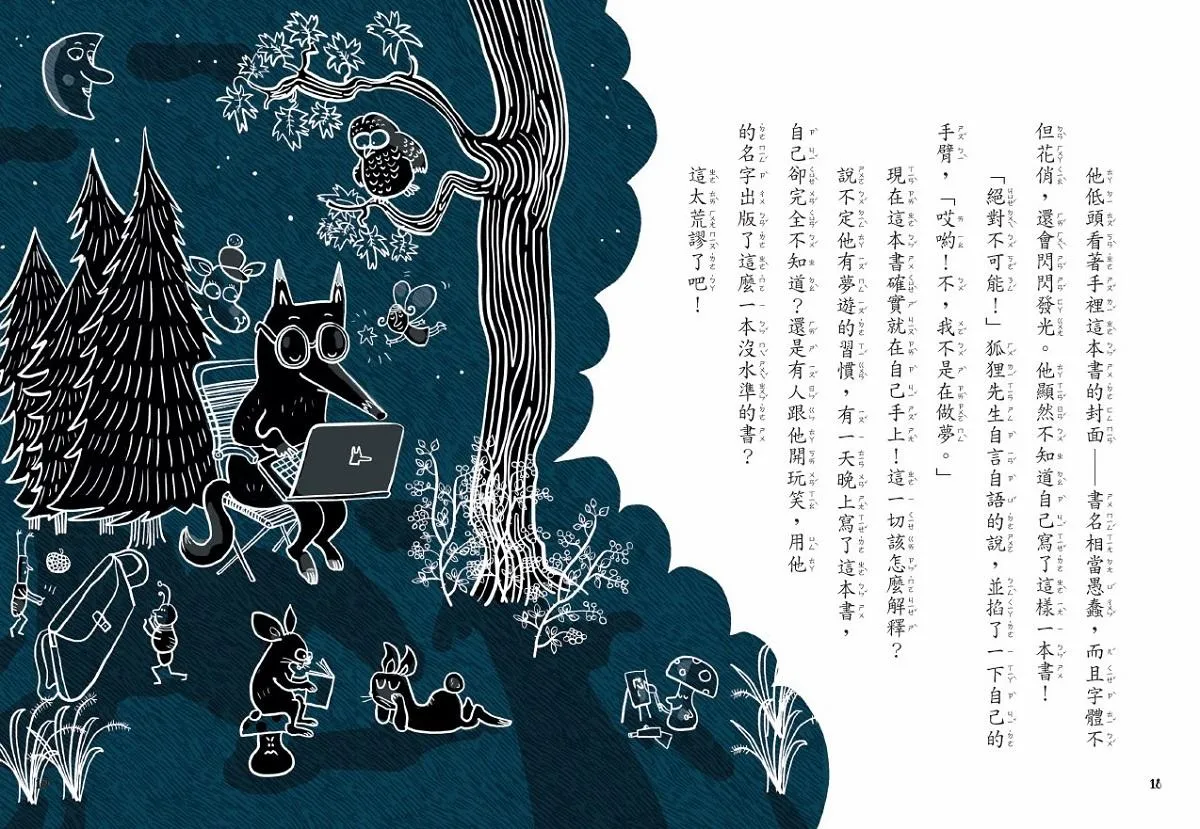 他低頭看著手裡這本書的封面——書名相當愚蠢，而且字體不
但花俏，還會閃閃發光。他顯然不知道自己寫了這樣一本書！
「絕對不可能！」狐狸先生自言自語的說，並掐了一下自己的
手臂，「哎喲！不，我不是在做夢。」
現在這本書確實就在自己手上！這一切該怎麼解釋？
說不定他有夢遊的習慣，有一天晚上寫了這本書，
自己卻完全不知道？還是有人跟他開玩笑，用他
的名字出版了這麼一本沒水準的書？
這太荒謬了吧！
18